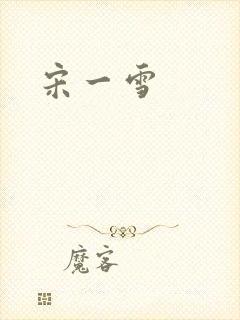 宋一雪
魔客